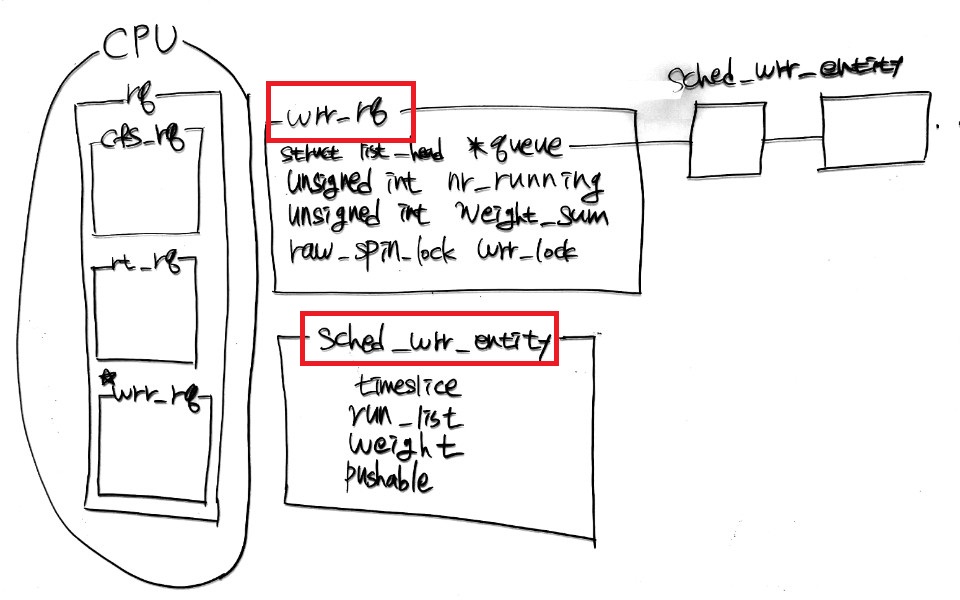 CPU
rq
cfs_rq
rt_rq
*wrr_rq
wrr_rq
struct list_head *queue
unsigned int nr_running
unsigned int weight_sum
raw_spin_lock wrr_lock
sched_wrr_entity
sched_wrr_entity
timeslice
run_list
weight
pushable